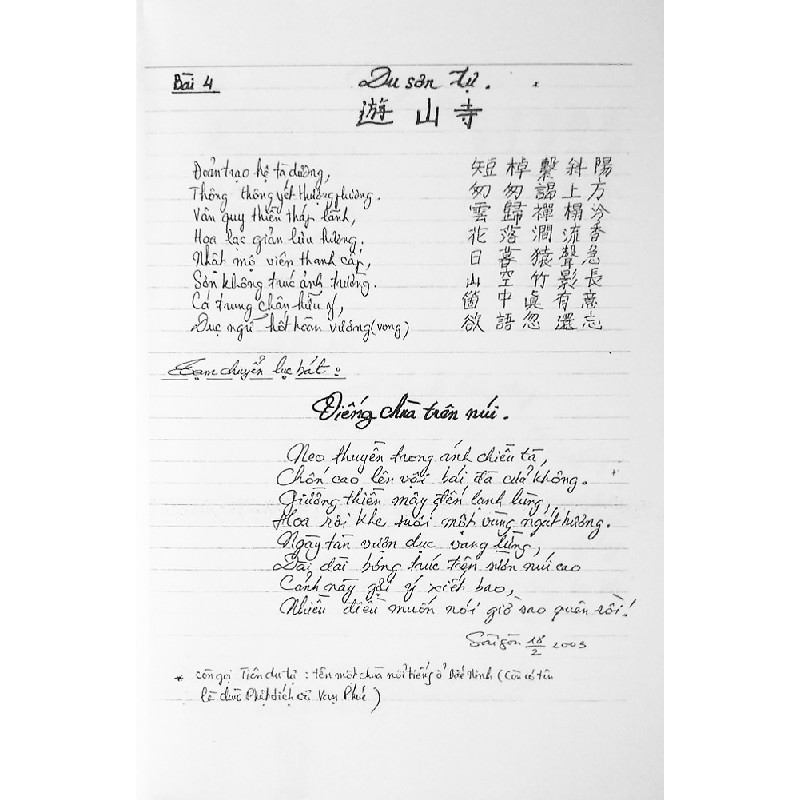 Bài 4
Du sơn tự. *
遊山寺
Đoản trạo hệ tà dương,
短棹繫斜陽
Thông thông yết thượng phương.
匆匆謁上方
Vân quy thiền tháp lãnh,
雲歸禪榻冷
Hoa lạc giản lưu hương.
花落澗流香
Nhật mộ viên thanh cấp,
日暮猿聲急
Sơn không trúc ảnh trường.
山空竹影長
Cá trung chân hữu ý,
箇中眞有意
Dục ngữ hốt hoàn vương (vong)
欲語忽還忘
Tạm chuyển lục bát:
Viếng chùa trên núi.
Neo thuyền trong ánh chiều tà,
Chốn cao lên vội bái đà cửa không.
Giường thiền mây đến lạnh lùng,
Hoa rơi khe suối một vùng ngát hương.
Ngày tàn vượn dục vang lừng,
Dài dài bóng trúc trên nền núi cao
Cảnh này gợi ý xiết bao,
Nhiều điều muốn nói giờ sao quên rồi!
Sàigòn 18/2 2003
* còn gọi Tiên du tự: tên một chùa nổi tiếng ở Bắc Ninh (Còn có tên
là chùa Phật tích và Vạn Phúc)